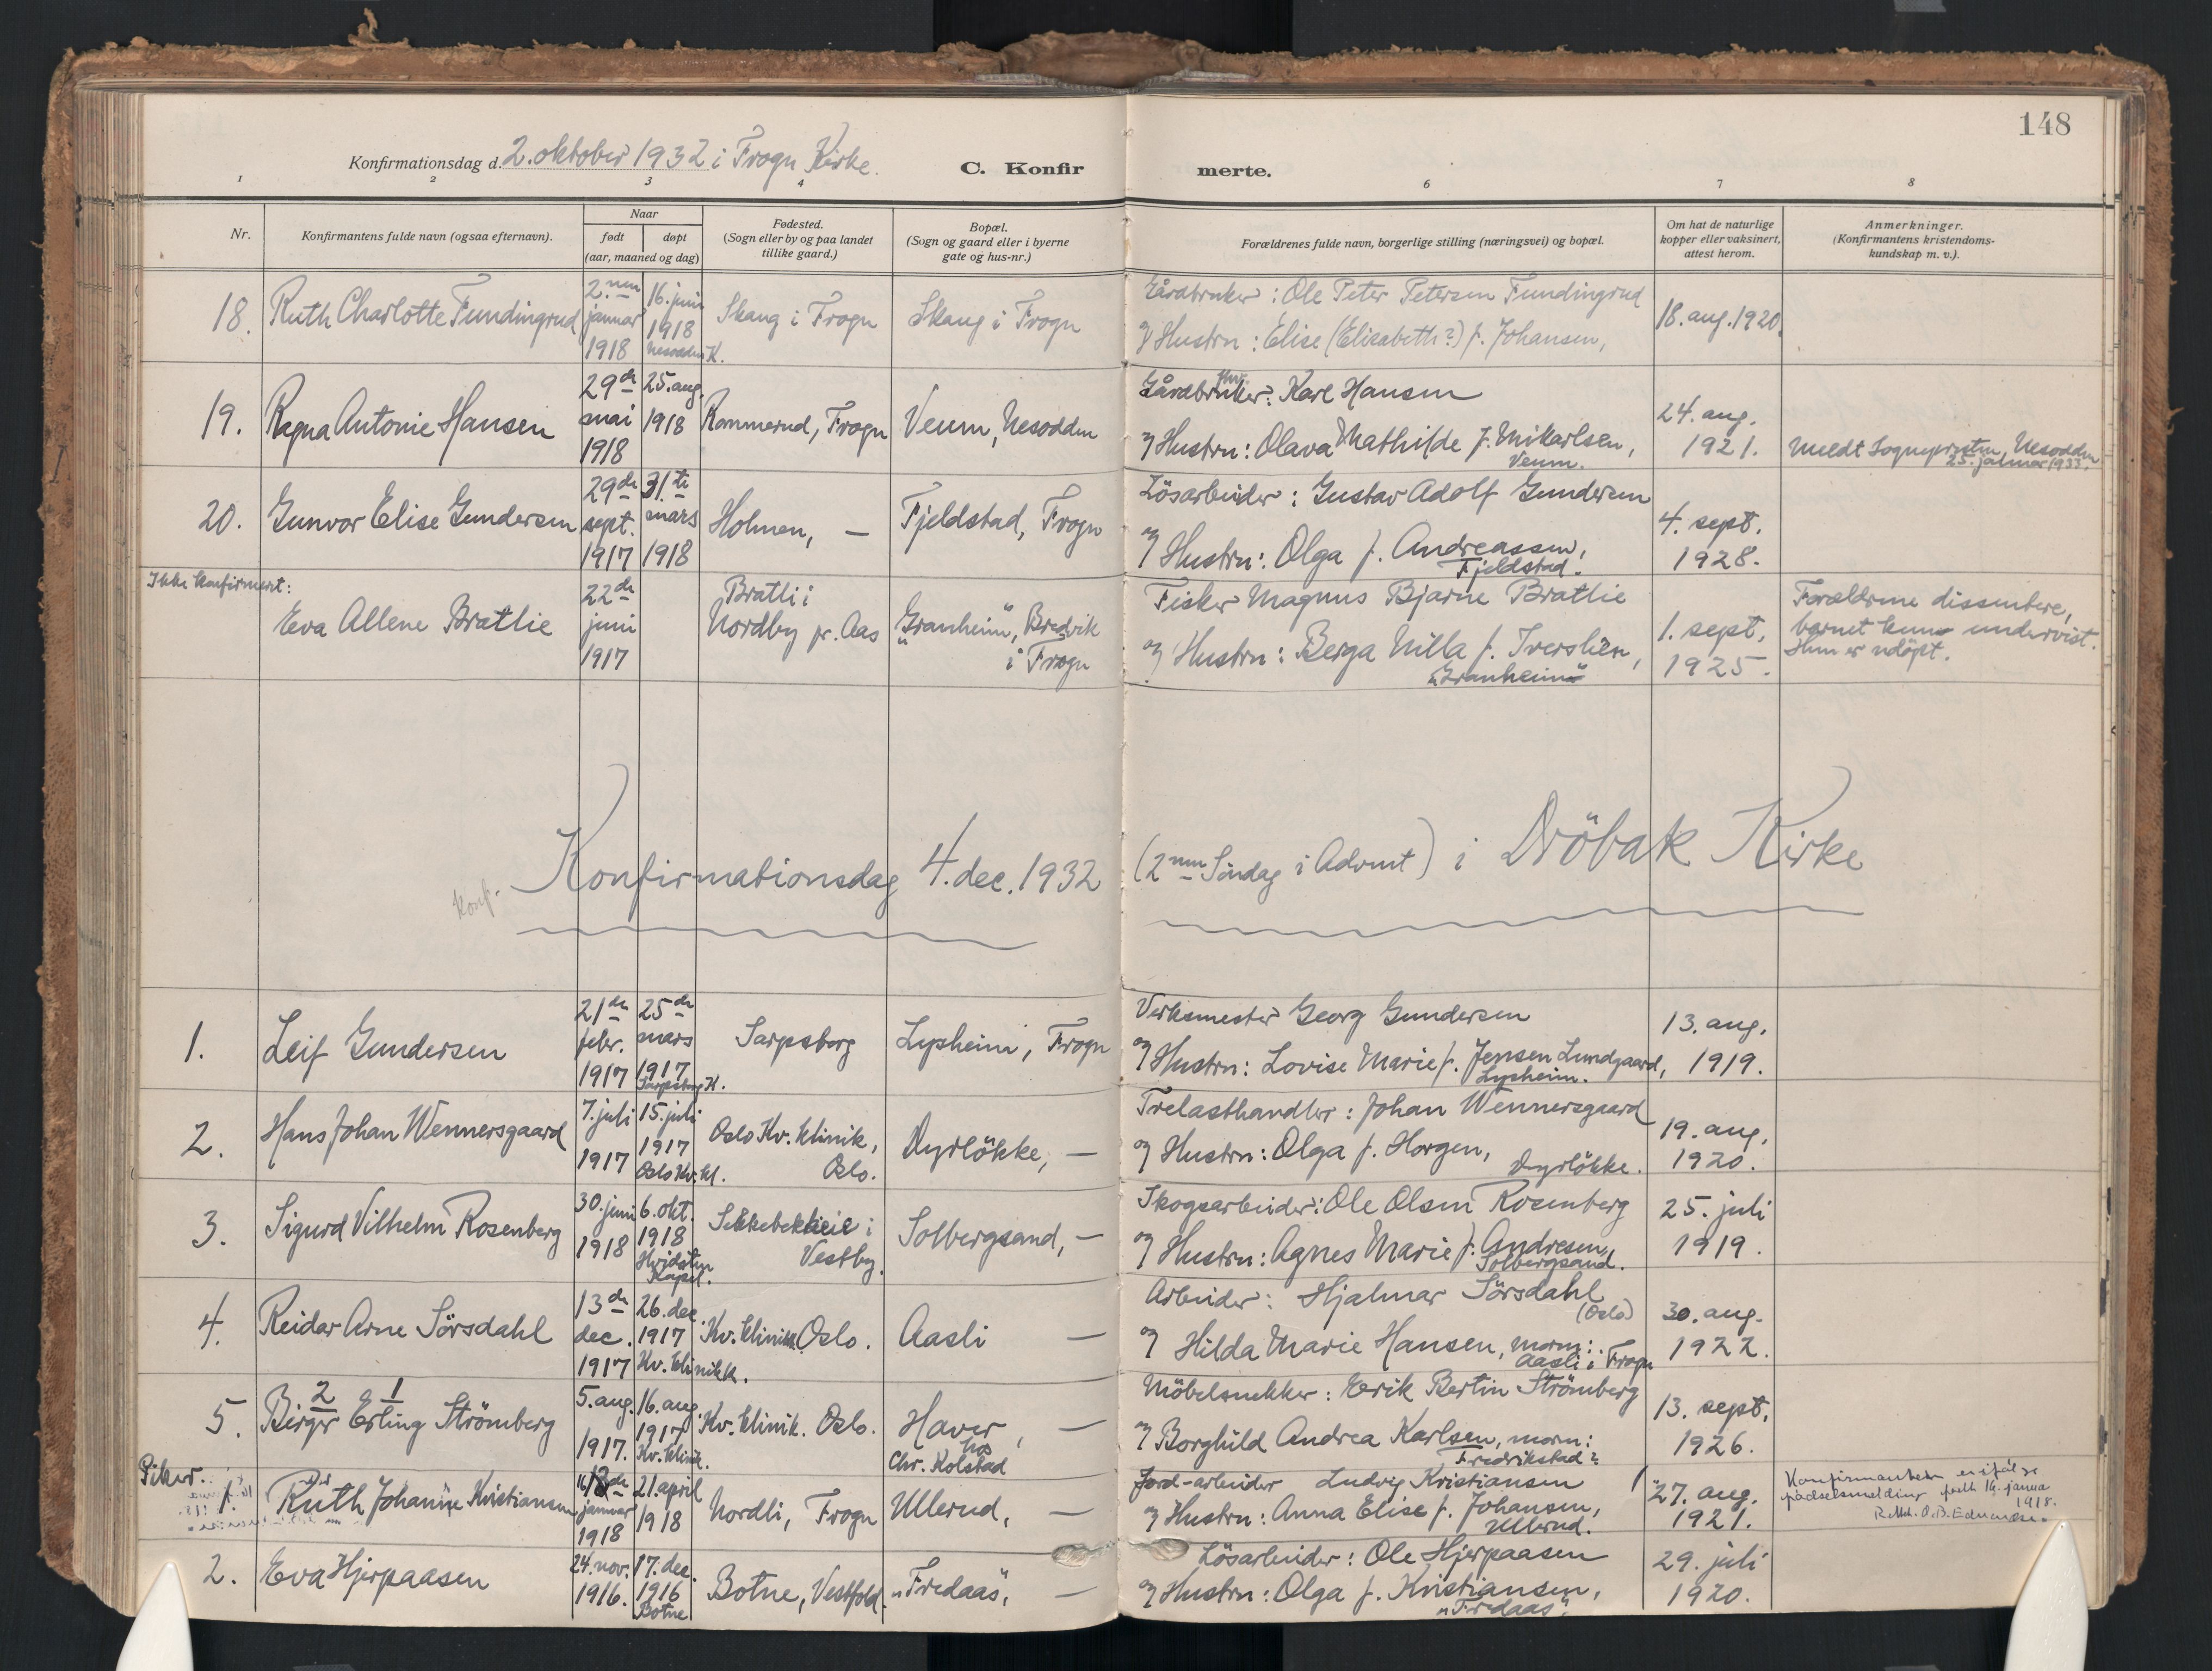 148
Konfirmationsdag d. 2. oktober 1932 i Frogn Kirke.
C. Konfirmerte.
1 2 3 4 6 7 8
Nr.
Konfirmantens fulde navn (ogsaa efternavn).
Naar
født døpt
(aar, maaned og dag)
Fødested.
(Sogn eller by og paa landet
tillike gaard.)
Bopæl.
(Sogn og gaard eller i byerne
gate og hus-nr.)
Forældrenes fulde navn, borgerlige stilling (næringsvei) og bopæl.
Om hat de naturlige
kopper eller vaksinert,
attest herom.
Anmerkninger.
(Konfirmantens kristendoms-
kundskap m. v.).
18. Ruth Charlotte Fundingrud
2.nen
januar
1918
16. juni
1918
Nesodden K.
Skaug i Frogn
Skaug i Frogn
Gårdbruker: Ole Peter Petersen Fundingrud
og Hustru: Elise (Elisabeth?) f. Johansen,
18. aug. 1920.
19. Ragna Antonie Hansen
29de
mai
1918
25. aug.
1918
Rommerud, Frogn
Veum, Nesodden
Gårdbruker: Karl Hansen
og Hustru: Olava Mathilde f. Mikarlsen,
Veum.
24. aug.
1921.
Meldt Sogneprsten, Nesodden
25. januar 1933.
20. Gunvor Elise Gundersen
29de
sept.
1917
31.te
mars
1918
Holmen, —
Fjeldstad, Frogn
Lösarbeider: Gustav Adolf Gundersen
og Hustru: Olga f. Andreassen,
Fjeldstad.
4. sept.
1928.
Ikke konfirmert:
Eva Allene Bratlie
22de
juni
1917
Bratli i
Nordby pr. Aas
"Granheim", Bredvik
i Frogn
Fisker Magnus Bjarne Bratlie
og Hustru: Berga Nilla f. Iverslien,
"Granheim"
1. sept.
1925.
Forældrene dissentere,
barnet kun undervist.
Hun er udöpt.
Konf.
Konfirmationsdag 4. dec. 1932 (2nen Söndag i Advent) i Dröbak Kirke
1. Leif Gundersen
21de
febr.
1917
25de
mars
1917
Sarpsborg K.
Sarpsborg
Lysheim, Frogn
Verksmester Georg Gundersen
og Hustru: Lovise Marie f. Jensen Lundgaard,
Lysheim.
13. aug.
1919.
2. Hans Johan Wennersgaard
7. juli
1917
15. juli
1917
Oslo Kv. kl.
Oslo Kv. klinik,
Oslo.
Dyrlökke, —
Trelasthandler: Johan Wennersgaard
og Hustru: Olga f. Horgen,
Dyrlökke.
19. aug.
1920.
3. Sigurd Vilhelm Rosenberg
30. juni
1918
6. okt.
1918
Hvidsten
Kapel.
Sekkebekkeie i
Vestby.
Solbergsand, —
Skogsarbeider: Ole Olsen Rosenberg
og Hustru: Agnes Marie f. Andresen,
Solbergsand.
25. juli
1919.
4. Reidar Arne Sörsdahl
13de
dec.
1917
26. dec.
1917
Kv. klinikk.
Kv. klinikk Oslo.
Aasli —
Arbeider: Hjalmar Sörsdahl
(Oslo)
og Hilda Marie Hansen, morm:
Aasli i Frogn
30. aug.
1922.
5. Birger Erling Strömberg
2 1
5. aug.
1917.
16. aug.
1917
Kv. klinik.
Kv. klinik. Oslo.
Haver, —
hos
Chr. Kolstad
Möbelsnekker: Erik Bertin Strömberg
og Borghild Andrea Karlsen, morm:
Fredrikstad?
13. sept.
1926.
Piker.
1. Ruth Johanne Kristiansen
16de
januar
1918
21. april
1918
Nordli, Frogn
Ullerud, —
Jord-arbeider Ludvig Kristiansen
og Hustru: Anna Elise f. Johansen,
Ullerud.
27. aug.
1921.
Konfirmanten er ifölge
födselsmelding født 16. januar
1918.
2. Eva Hjerpaasen
24. nov.
1916.
17. dec.
1916
Botne
Botne, Vestfold.
"Fredaas", —
Lösarbeider: Ole Hjerpaasen
og Hustru: Olga f. Kristiansen,
"Fredaas".
29. juli
1920.